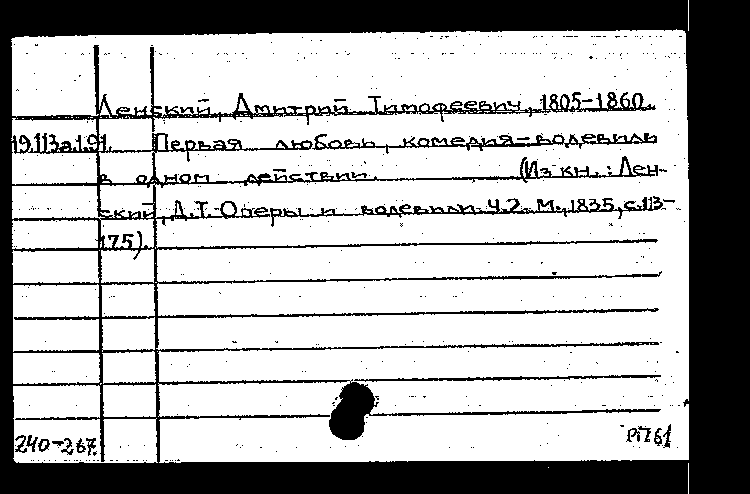 Ленский, Дмитрий Тимофеевич, 1805-1860.
19.113а.1.91. Первая любовь, комедия-водевиль
в одном действии. (Из кн.: Лен-
ский, Д.Т. Оперы и водевили. Ч.2. М., 1835, с.113-
175).
240-267.
РП61